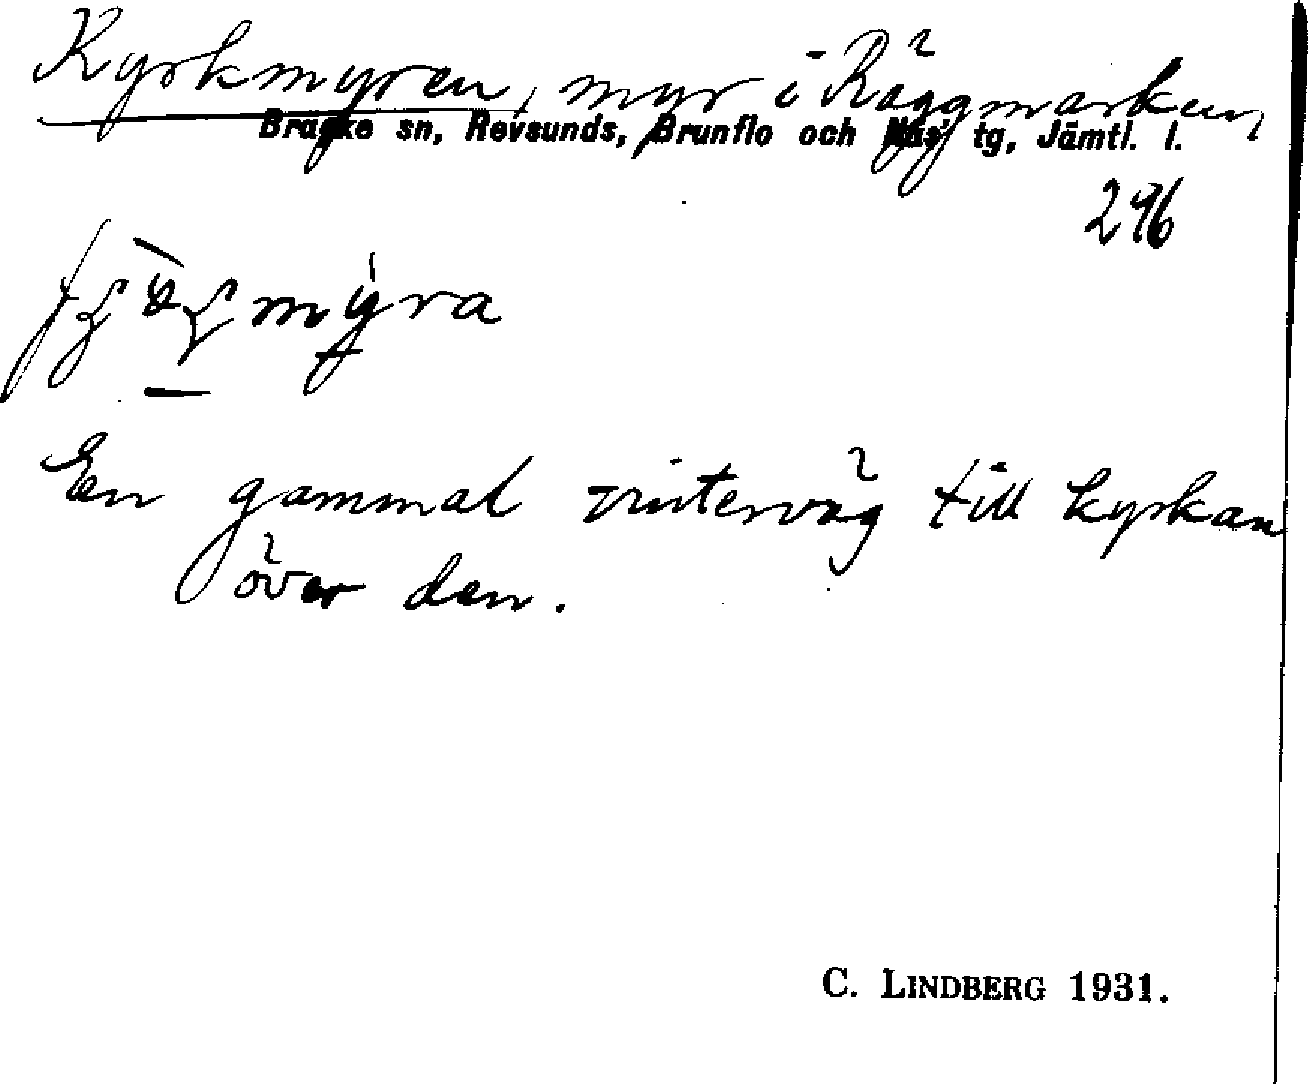 Kyrkmyren, myr i Räggmarken,
Bräcke sn, Revsunds, Brunflo och Näs' tg, Jämtl. l.
296
En gammal vinterväg till kyrkan
över den.
C. LINDBERG 1931.